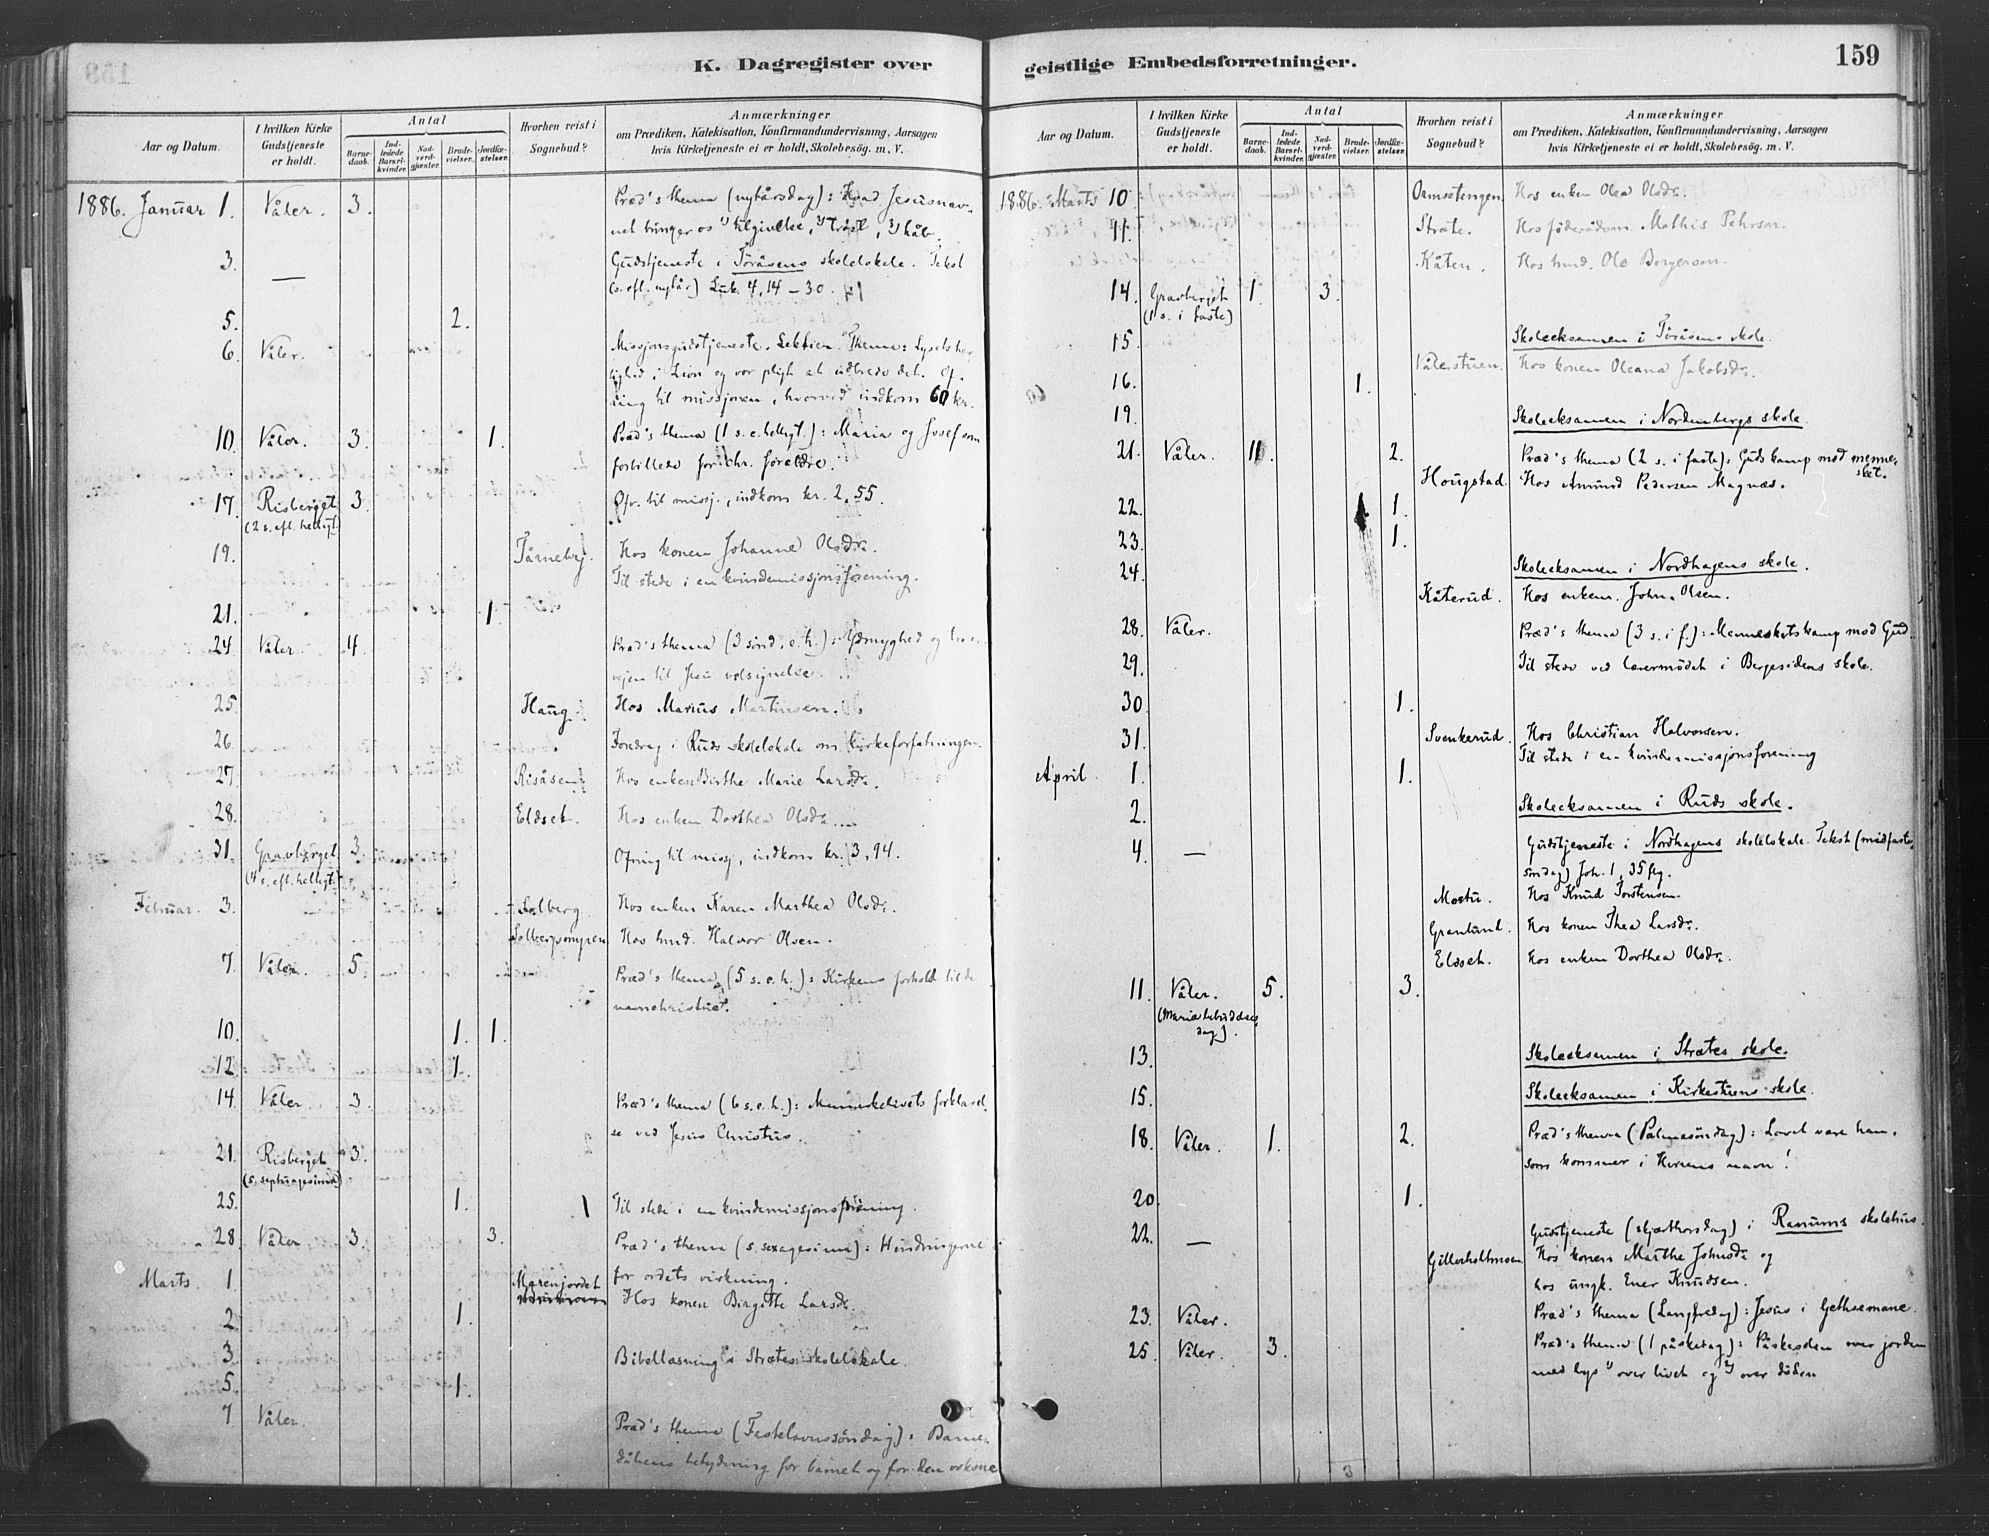 K. Dagregister over
Aar og Datum.
I hvilken Kirke Gudstjeneste er holdt.
Antal
Barne-daab.
Ind-ledede Barsel-kvinder.
Nad-verd-gjæster.
Brude-vielser.
Jordfæ-stelser.
Hvorhen reist i Sognebud?
Anmærkninger
om Prædiken, Katekisation, Konfirmandundervisning, Aarsagen
hvis Kirketjeneste ei er holdt, Skolebesög. m. V.
1886. Januar 1. Våler. 3. Præd's thema (nytårsdag): Hvad Jesusnav-
net bringer os 1) tilgivelse, 2) trøst, 3) håb.
3. — Gudstjeneste i Toråsens skolelokale. Tekst
(s. eft. nytår) Luk. 4, 14-30.
5. 2.
6. Våler. Missjonsgudstjeneste. Lektien. Thema: Lysets her-
lighed i Zion og vor pligt at udbrede det. Of-
ring til missjonen, hvorved indkom 60 kr.
10. Våler. 3. 1. Præd's thema (1 s. e. helligt.): Maria og Josef som
forbillede for chr. forældre.
17. Risberget 3. Ofr. til missj., indkom kr. 2,55.
(2 s. eft. helligt.)
19. Tårneby. Hos konen Johanne Olsdr.
Til stede i en kvindemissjonsforening.
21. 1.
24. Våler. 4. Præd's thema (3 sönd. e. h.): Ydmyghed og tro er
vejen til Jesu velsignelse.
25. Haug. Hos Marius Martinsen.
26. Foredrag i Ruds skolelokale om kirkeforfatningen.
27. Risåsen. Hos enken Birthe Marie Larsdr.
28. Eldset. Hos enken Dorthea Olsdr.
31. Gravberget 3. Ofring til missj., indkom kr. 3,94.
(4 s. eft. helligt.)
Februar. 3. Solberg. Hos enken Karen Marthea Olsdr.
Solbergsmyren Hos husd. Halvor Olsen.
7. Våler. 5. Præd's thema (5 s. e. h.): Kirkens forhold til de
navnchristne.
10. 1. 1.
12. 1.
14. Våler. 3. Præd's thema (6 s. e. h.): Menneskelivets forklarel-
se ved Jesus Christus.
21. Risberget 3.
(s. septuagesima)
25. 1. Til stede i en kvindemissjonsforening.
28. Våler 3. 3. Præd's thema (s. sexagesima): Hindringerne
for ordets virkning.
Marts. 1 Marenjordet Hos konen Birgitte Larsdr.
2 1.
3. Bibellæsning i Strætes skolelokale.
5 1.
7 Våler. Præd's thema (Fastelavnssöndag): Barne-
dåbens betydning for barnet og for den voksne
geistlige Embedsforretninger.
159
Aar og Datum.
I hvilken Kirke Gudstjeneste er holdt.
Antal
Barne-daab.
Ind-ledede Barsel-kvinder.
Nad-verd-gjæster.
Brude-vielser.
Jordfæ-stelser.
Hvorhen reist i Sognebud?
Anmærkninger
om Prædiken, Katekisation, Konfirmandundervisning, Aarsagen
hvis Kirketjeneste ei er holdt, Skolebesög. m. V.
1886. Marts 10 Hos enken Olea Olsdr.
11. Stræte. Hos föderådsm. Mathis Pehrsen.
Kåten. Hos husd. Ole Bergersen.
14. Gravberget 1. 3.
(1 s. i faste)
15. Skoleeksamen i Toråsens skole.
Vålerstuen. Hos konen Oleana Jakobsdr.
16. 1.
19. Skoleeksamen i Nordenbergs skole.
21. Våler. 11. 2. Præd's thema (2 s. i faste): Guds kamp mod mennes-
ket.
Hougstad. Hos Amund Pedersen Magnæs.
22. 1.
23. 1.
24. Skoleeksamen i Nordhagens skole.
Kåterud. Hos enkem. John Olsen.
28. Våler. Præd's thema (3 s. i f.): Menneskets kamp mod Gud.
29. Til stede ved lærermödet i Bergesidens skole.
30. 1.
31. Svenkerud. Hos Christian Halvorsen.
Til stede i en kvindemissjonsforening
April 1. 1.
2. Skoleeksamen i Ruds skole.
4. — Gudstjeneste i Nordhagens skolelokale. Tekst (midfaste-
söndag) Joh. 1, 35 flg.
Mostu. Hos Knud Torstensen.
Granlund. Hos konen Thea Larsdr.
Eldset. Hos enken Dorthea Olsdr.
11. Våler. 5. 3.
(Mariæ bebudelses-
dag).
13. Skoleeksamen i Strætes skole.
15. Skoleeksamen i Kirkestuens skole.
18. Våler. 1. 2. Præd's thema (Palmesöndag): Lovet være han,
som kommer i Herrens navn!
20. 1.
22. — Gudstjeneste (skjærthorsdag) i Ranums skolehus.
Gillerholtmoen Hos konen Marthe Johnsdr og
hos ungk. Ener Knudsen.
23. Våler. Præd's thema (Langfredag): Jesus i Gethsemane.
25. Våler. 3. Præd's thema (1 påskedag): Påskesolen over jorden
med lys 1) over livet og 2) over döden
3